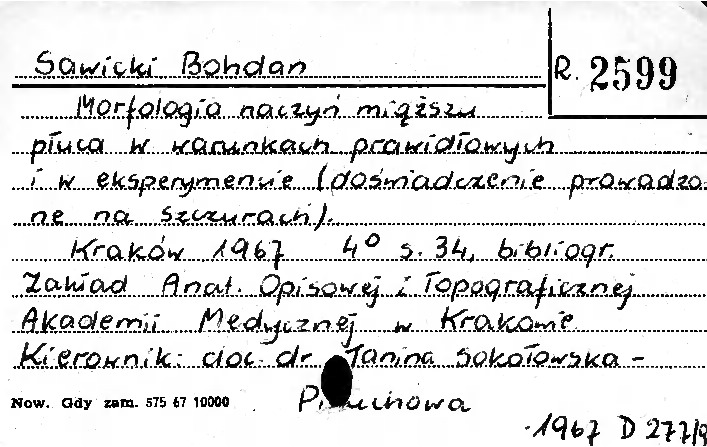 Sawicki Bohdan
R. 2599
Morfologia naczyń miąższu
płuca w warunkach prawidłowych
i w eksperymencie (doświadczenie prowadzo-
ne na szczurach).
Kraków 1967 4° s. 34, bibliogr.
Zakład Anat. Opisowej i Topograficznej
Akademii Medycznej w Krakowie
Kierownik: doc. dr Janina Sokołowska-
Now. Gdy zam. 575 67 10000
1967 D 277/9